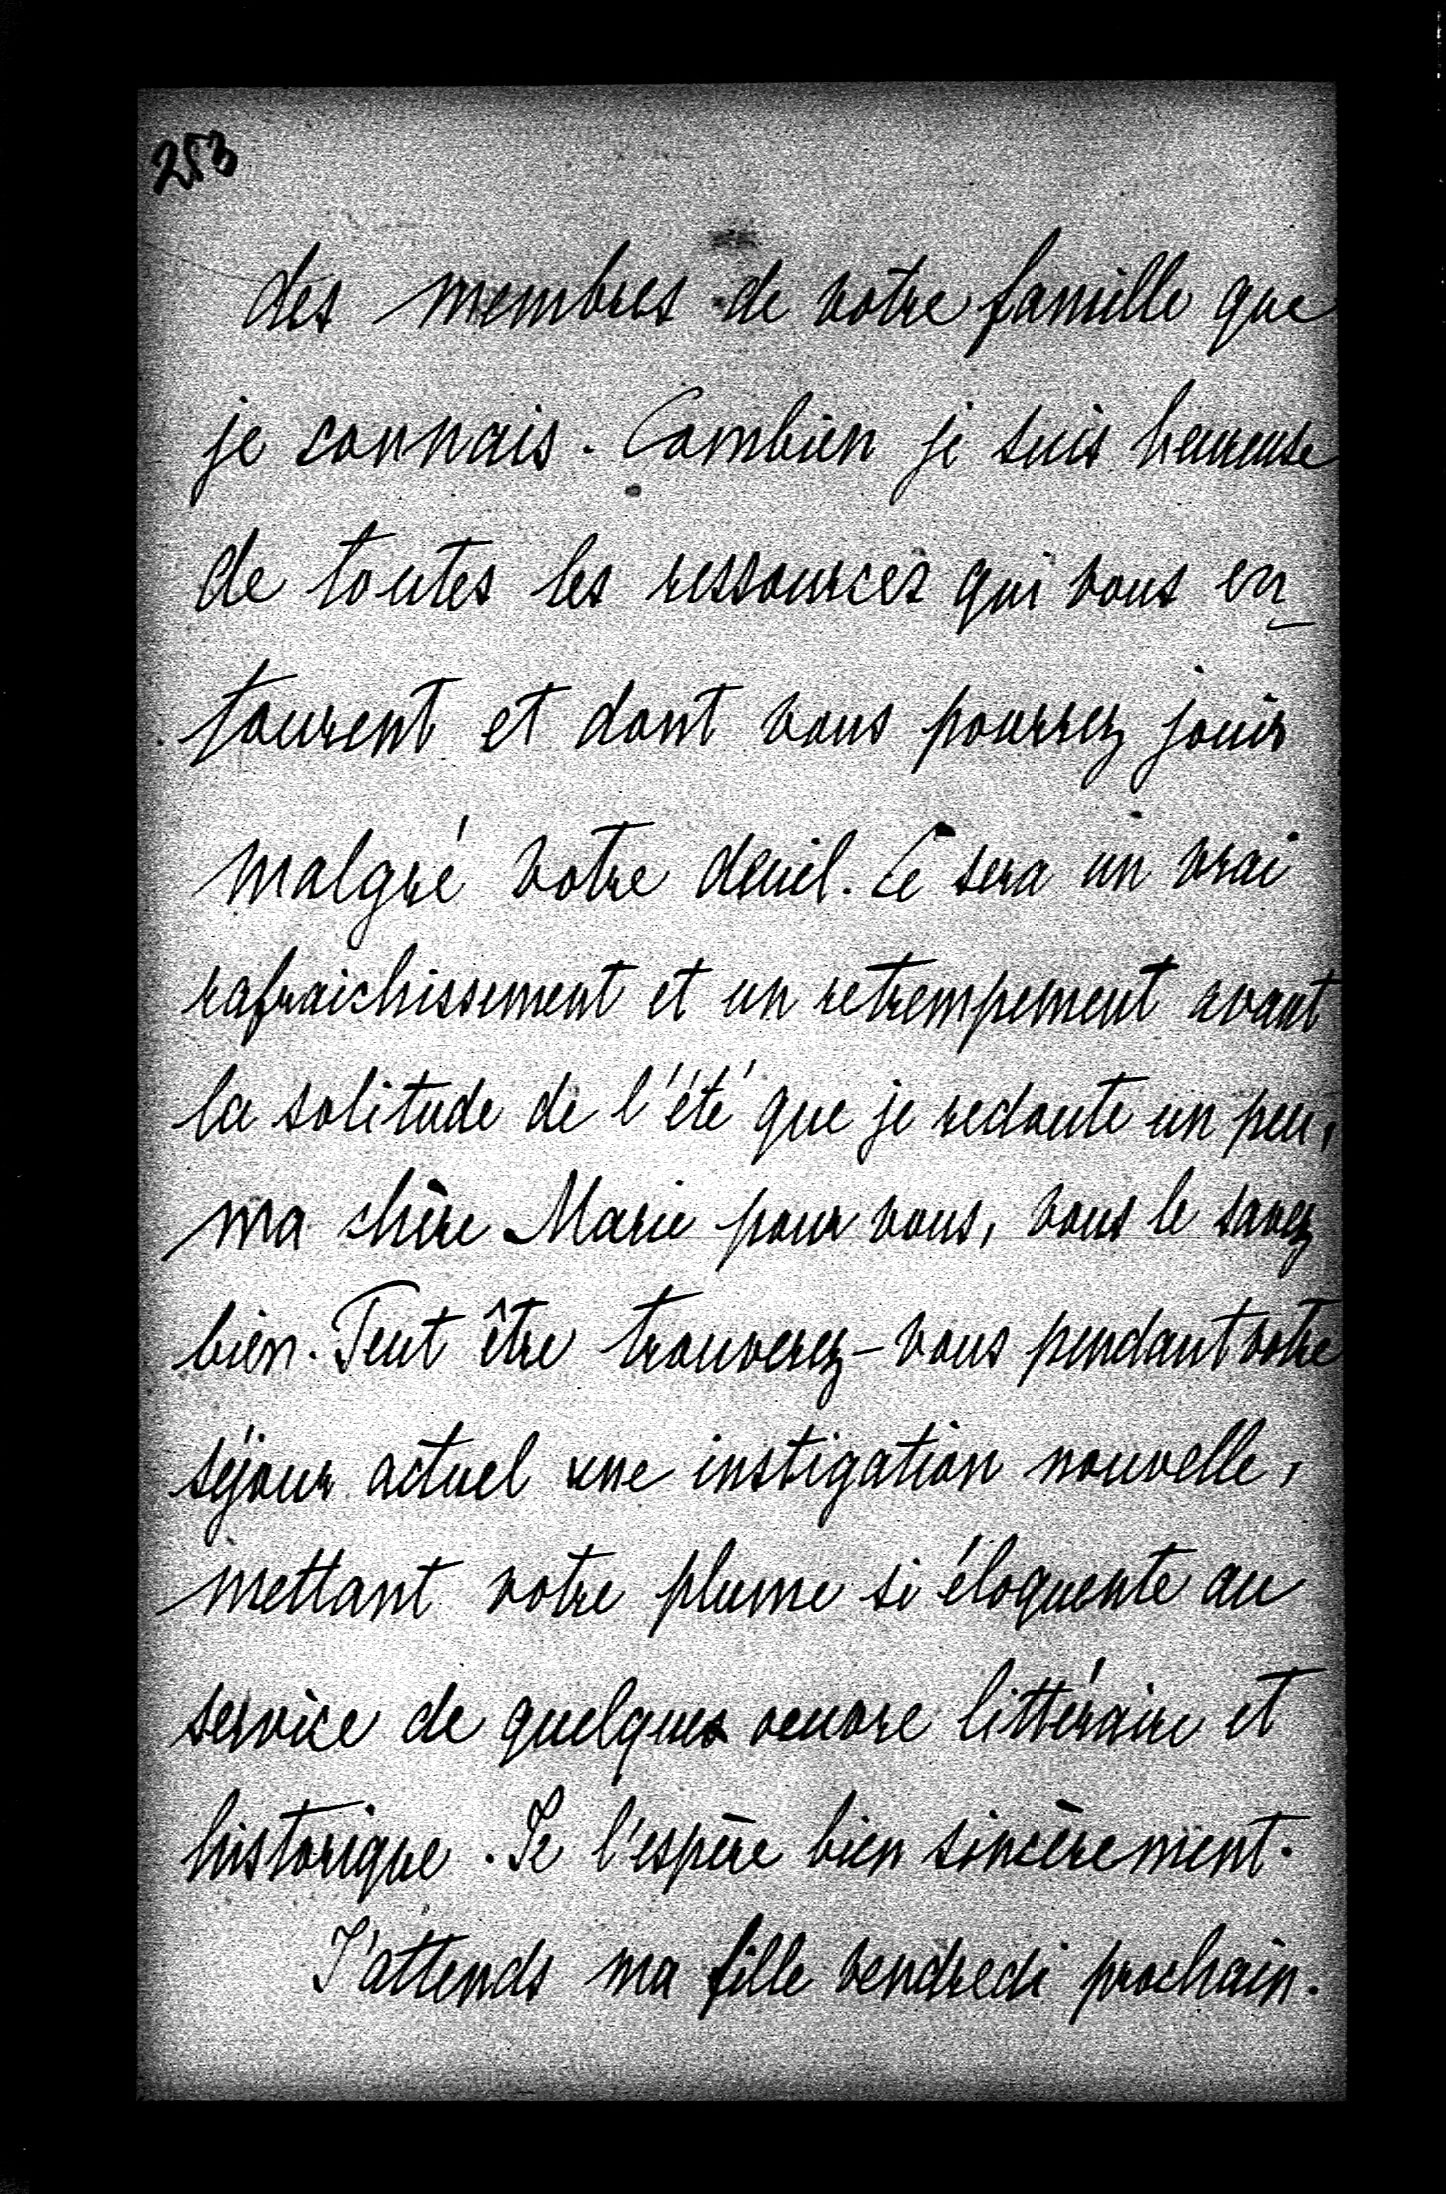 253
des membres de votre famille que
je connais. Combien je suis heureuse
de toutes les ressources qui vous en-
tourent et dont vous pourrez jouir
malgré votre deuil. Ce sera un vrai
rafraichissement et un retrempement avant
la solitude de l'été que je redoute un peu,
ma chère Marie pour vous, vous le savez
bien. Peut être trouverez-vous pendant votre
séjour actuel une instigation nouvelle,
mettant votre plume si éloquente au
service de quelques oeuvre littéraire et
historique. Je l'espère bien sincèrement.
J'attends ma fille vendredi prochain.